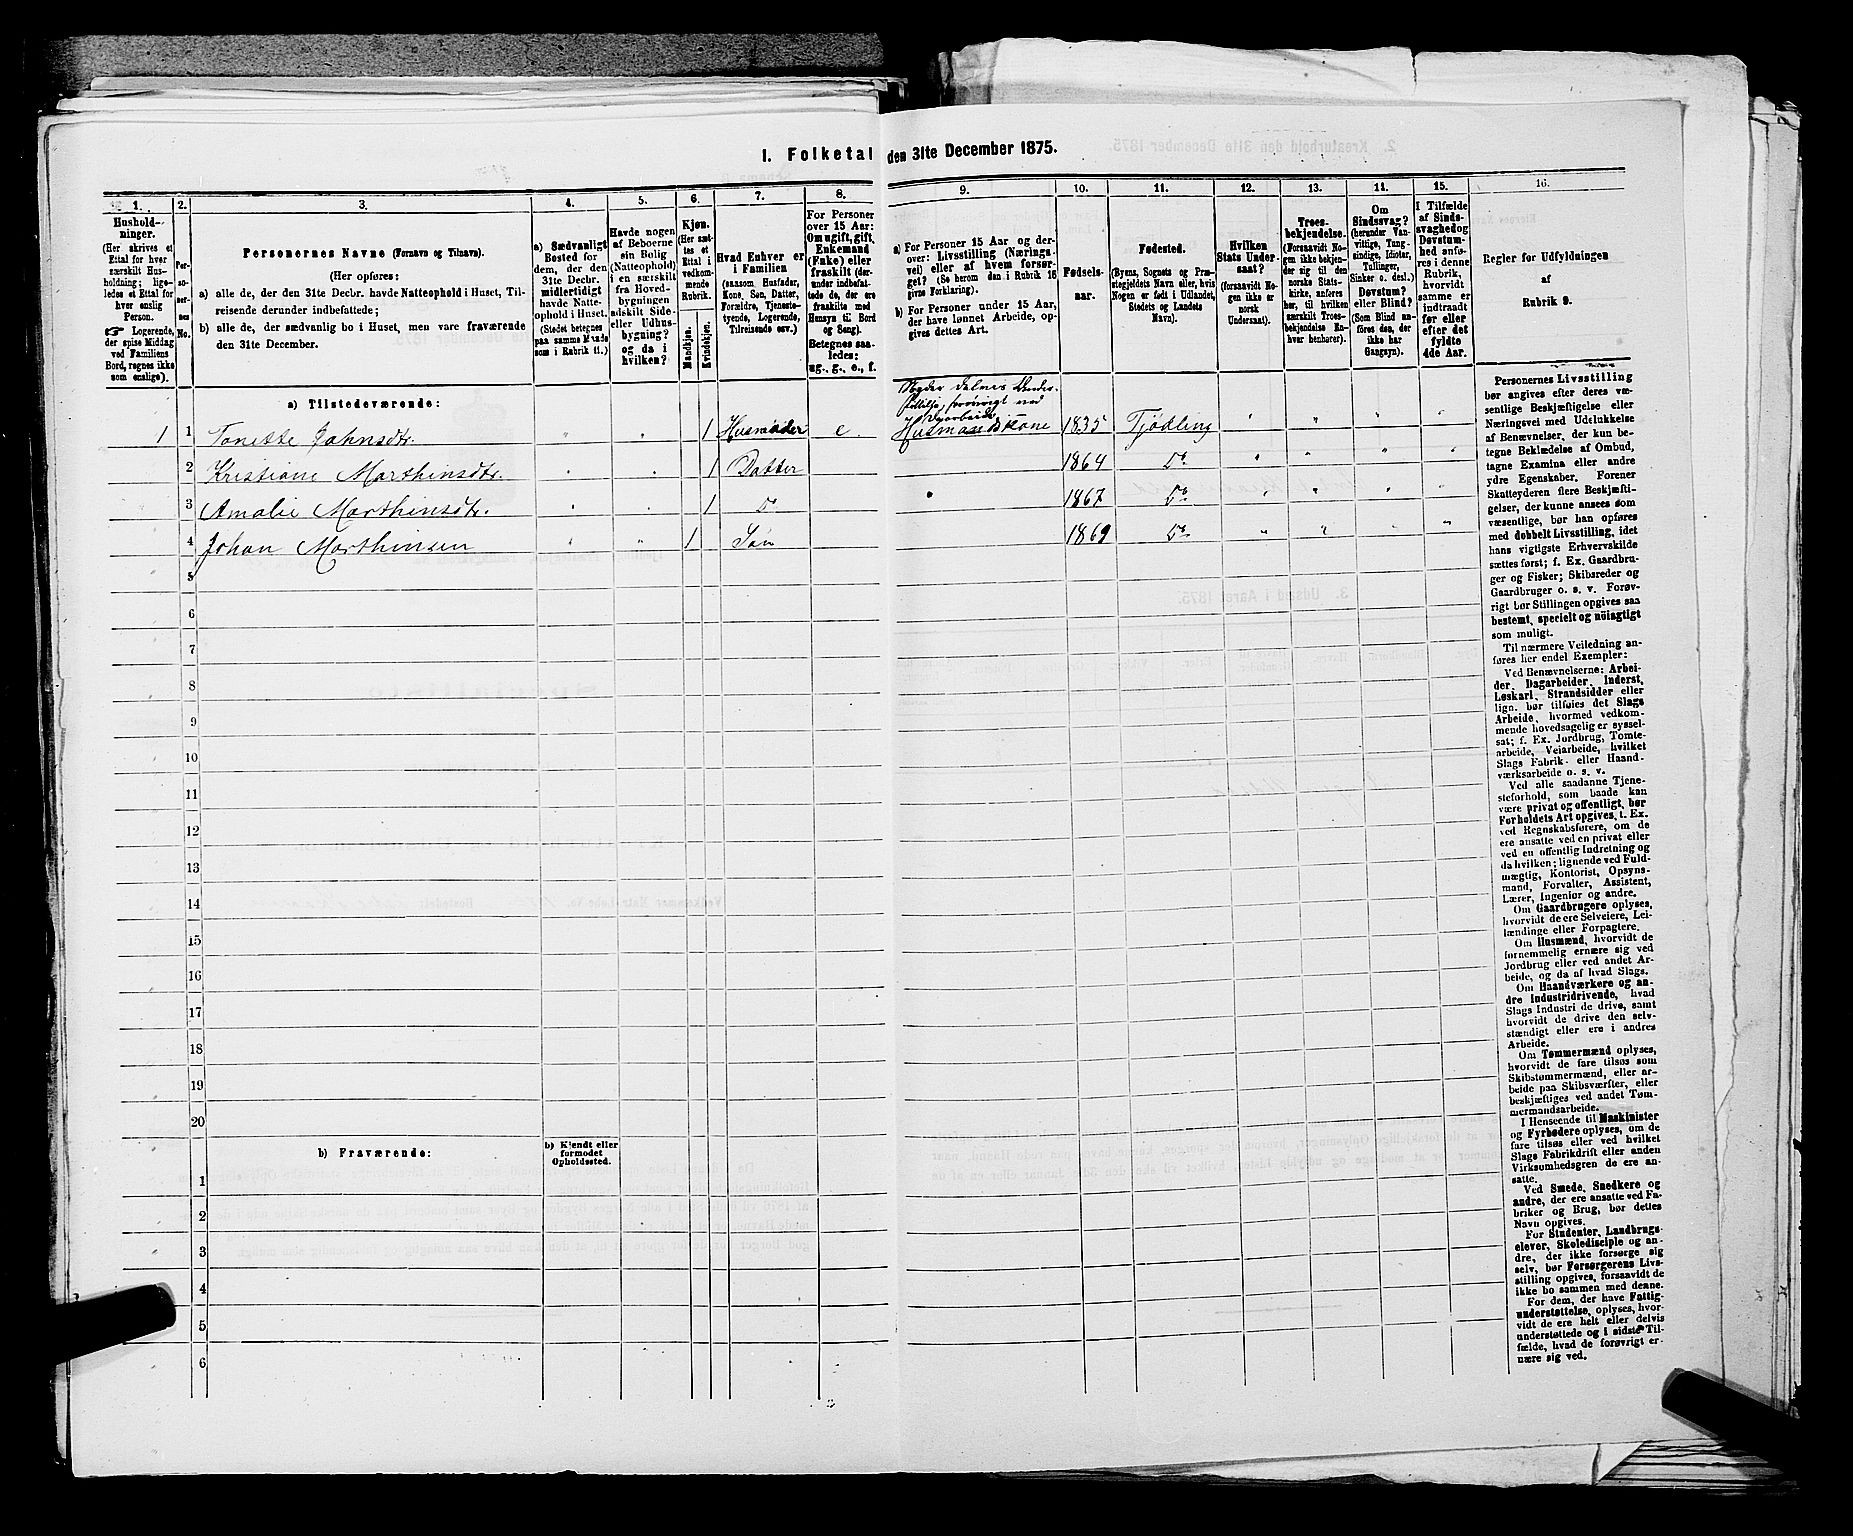 I. Folketal den 31te December 1875.
1.
Hushold-
ninger.
(Her skrives et
Ettal for hver
særskilt Hus-
holdning; lige-
ledes et Ettal for
hver enslig
Person.
Logerende,
der spise Middag
ved Familiens
Bord, regnes ikke
som enslige).
2.
Per-
so-
ner-
nes
No.
3.
Personernes Navne (Fornavn og Tilnavn).
(Her opføres:
a) alle de, der den 31te Decbr. havde Natteophold i Huset, Til-
reisende derunder indbefattede;
b) alle de, der sædvanlig bo i Huset, men vare fraværende
den 31te December.
4.
a) Sædvanligt
Bosted for
dem, der den
31te Decbr.
midlertidigt
havde Natte-
ophold i Huset.
(Stedet betegnes
paa samme Maade
som i Rubrik 11.)
5.
Havde nogen
af Beboerne
sin Bolig
(Natteophold)
i en særskilt
fra Hoved-
bygningen
adskilt Side-
eller Udhus-
bygning?
og da i
hvilken?
6.
Kjøn.
(Her sæt-
tes et
Ettal i
vedkom-
mende
Rubrik.
Mandkjøn.
Kvindekjøn.
7.
Hvad Enhver er
i Familien
(saasom Husfader,
Kone, Søn, Datter,
Forældre, Tjeneste-
tyende, Logerende,
Tilreisende osv.)
8.
For Personer
over 15 Aar:
Om ugift, gift,
Enkemand
(Enke) eller
fraskilt (der-
under indbefat-
tede de, der ere
fraskilte med
Hensyn til Bord
og Seng).
Betegnes saa-
ledes:
ug., g., e., f.
9.
a) For Personer 15 Aar og der-
over: Livsstilling (Nærings-
vei) eller af hvem forsør-
get? (Se herom den i Rubrik 16
givne Forklaring).
b) For Personer under 15 Aar,
der have lønnet Arbeide, op-
gives dettes Art.
10.
Fødsels-
aar.
11.
Fødested.
(Byens, Sognets og Præ-
stegjeldets Navn eller, hvis
Nogen er født i Udlandet,
Stedets og Landets
Navn).
12.
Hvilken
Stats Under-
saat?
(forsaavidt No-
gen ikke er
norsk
Undersaat).
13.
Troes-
bekjendelse.
(Forsaavidt No-
gen ikke bekjen-
der sig til den
norske Stats-
kirke, anføres
her, til hvilken
særskilt Troes-
bekjendelse En-
hver henhører).
14.
Om
Sindssvag?
(herunder Van-
vittige, Tung-
sindige, Idioter,
Tullinger,
Sinker o. desl.)
Døvstum?
eller Blind?
(Som Blind an-
føres den, der
ikke har
Gangsyn).
15.
I Tilfælde
af Sinds-
svaghed og
Døvstum-
hed anfø-
res i denne
Rubrik,
hvorvidt
samme er
indtraadt
før eller
efter det
fyldte
4de Aar.
16.
Regler for Udfyldningen
af
Rubrik 9.
a) Tilstedeværende:
1 1 Tonette Johnsdtr. 1 Husmoder e. Husmandskone 1835 Tjødling
2 Kristiane Marthinsdtr. 1 Datter 1864 Do
3 Amalie Marthinsdtr. 1 Do 1867 Do
4 Johan Marthinsen 1 Søn 1869 Do
5
6
7
8
9
10
11
12
13
14
15
16
17
18
19
20
b) Fraværende:
b) Kjendt eller
formodet
Opholdssted.
1
2
3
4
5
6
Personernes Livsstilling
bør angives efter deres væ-
sentlige Beskjæftigelse eller
Næringsvei med Udelukkelse
af Benævnelser, der kun be-
tegne Beklædelse af Ombud,
tagne Examina eller andre
ydre Egenskaber. Forener
Skatteyderen flere Beskjæfti-
gelser, der kunne ansees som
væsentlige, bør han opføres
med dobbelt Livsstilling, idet
hans vigtigste Erhvervskilde
sættes først; f. Ex. Gaardbru-
ger og Fisker; Skibsreder og
Gaardbruger o. s. v. Forøv-
rigt bør Stillingen opgives saa
bestemt, specielt og nøiagtigt
som muligt.
Til nærmere Veiledning an-
føres her endel Exempler:
Ved Benævnelserne: Arbei-
der, Dagarbeider, Inderst,
Løskarl, Strandsidder eller
lign. bør tilføies det Slags
Arbeide, hvormed vedkom-
mende hovedsagelig er syssel-
sat; f. Ex. Jordbrug, Tomte-
arbeide, Veiarbeide, hvilket
Slags Fabrik- eller Haand-
værksarbeide o. s. v.
Ved alle saadanne Tjene-
steforhold, som baade kan
være privat og offentligt, bør
Forholdets Art opgives, t. Ex.
ved Regnskabsførere, om de
ere ansatte ved en privat eller
ved en offentlig Indretning og
da hvilken; lignende ved Fuld-
mægtig, Kontorist, Opsyns-
mand, Forvalter, Assistent,
Lærer, Ingeniør og andre.
Om Gaardbrugere oplyses,
hvorvidt de ere Selveiere, Lei-
lændinge eller Forpagtere.
Om Husmænd, hvorvidt de
fornemmelig ernære sig ved
Jordbrug eller ved andet Ar-
beide, og da af hvad Slags.
Om Haandværkere og an-
dre Industridrivende, hvad
Slags Industri de drive, samt
hvorvidt de drive den selv-
stændigt eller ere i andres
Arbeide.
Om Tømmermænd oplyses,
hvorvidt de fare tilsøs som
Skibstømmermænd, eller ar-
beide paa Skibsværfter, eller
beskjæftiges ved andet Tøm-
mermandsarbeide.
I Henseende til Maskinister
og Fyrbødere oplyses, om de
fare tilsøs eller ved hvilket
Slags Fabrikdrift eller anden
Virksomhedsgren de ere an-
satte.
Ved Smede, Snedkere og
andre, der ere ansatte ved Fa-
briker og Brug, bør dettes
Navn opgives.
For Studenter, Landbrugs-
elever, Skoledisciple og an-
dre, der ikke forsørge sig
selv, bør Forsørgerens Livs-
stilling opgives, forsaavidt de
ikke bo sammen med denne.
For dem, der have Fattig-
understøttelse, oplyses, hvor-
vidt de ere helt eller delvis
understøttede og i sidste Til-
fælde, hvad de forøvrigt er-
nære sig ved.